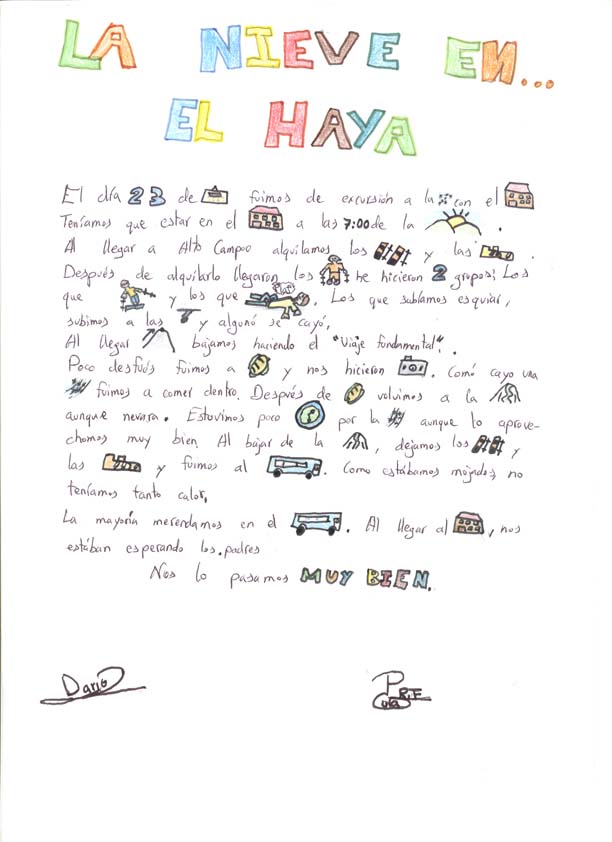 LA NIEVE EN...
EL HAYA
El día 23 de fuimos de excursión a la con el
Teníamos que estar en el a las 7:00 de la .
Al llegar a Alto Campoo alquilamos los y las .
Después de alquilarlo llegaron los he hicieron 2 grupos: Los
que y los que . Los que sabíamos esquiar,
subimos a las y algunó se cayó,
Al llegar bajamos haciendo el "Viaje fundamental".
Poco después fuimos a y nos hicieron . Comó cayo una
fuimos a comer dentro. Después de volvimos a la
aunque nevara. Estuvimos poco por la aunque lo aprove-
chamos muy bien. Al bajar de la , dejamos los y
las y fuimos al . Como estábamos mojados, no
teníamos tanto calor,
La mayoría merendamos en el . Al llegar al , nos
estában esperando los padres
Nos lo pasamos MUY BIEN.
Dario